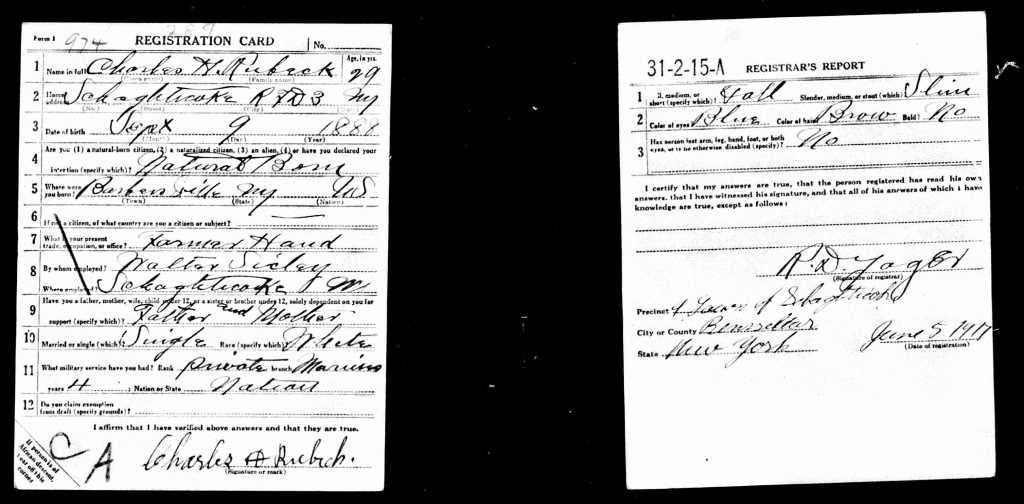 Form 1 974 269 REGISTRATION CARD No.
1 Name in full Charles H. Rubeck Age, in yrs. 29
(Given name) (Family name)
2 Home address Schaghticoke R F D 3 NY
(No.) (Street) (City) (State)
3 Date of birth Sept 9 1888
(Month) (Day) (Year)
4 Are you (1) a natural-born citizen, (2) a naturalized citizen, (3) an alien, (4) or have you declared your
intention (specify which)? Natural Born
5 Where were you born? ville NY US
(Town) (State) (Nation)
6 If not a citizen, of what country are you a citizen or subject?
7 What is your present trade, occupation, or office? Farmer Hand
8 By whom employed? Walter
Where employed? Schaghticoke
9 Have you a father, mother, wife, child under 12, or a sister or brother under 12, solely dependent on you for
support (specify which)? Father and Mother
10 Married or single (which)? Single Race (specify which)? White
11 What military service have you had? Rank private branch Marines
years 4 ; Nation or State Nation
12 Do you claim exemption from draft (specify grounds)?
I affirm that I have verified above answers and that they are true.
If person is of African descent, tear off this corner
C A Charles H Rubeck.
(Signature or mark)
31-2-15-A REGISTRAR'S REPORT
1 Tall, medium, or short (specify which)? Tall Slender, medium, or stout (which)? Slim
2 Color of eyes? Blue Color of hair? Brow Bald? No
3 Has person lost arm, leg, hand, foot, or both eyes, or is he otherwise disabled (specify)? No
I certify that my answers are true, that the person registered has read his own
answers, that I have witnessed his signature, and that all of his answers of which I have
knowledge are true, except as follows:
R. D. Yager
(Signature of registrar)
Precinct Town of Schaghticoke
City or County Rensselaer
State New York June 5 1917
(Date of registration)